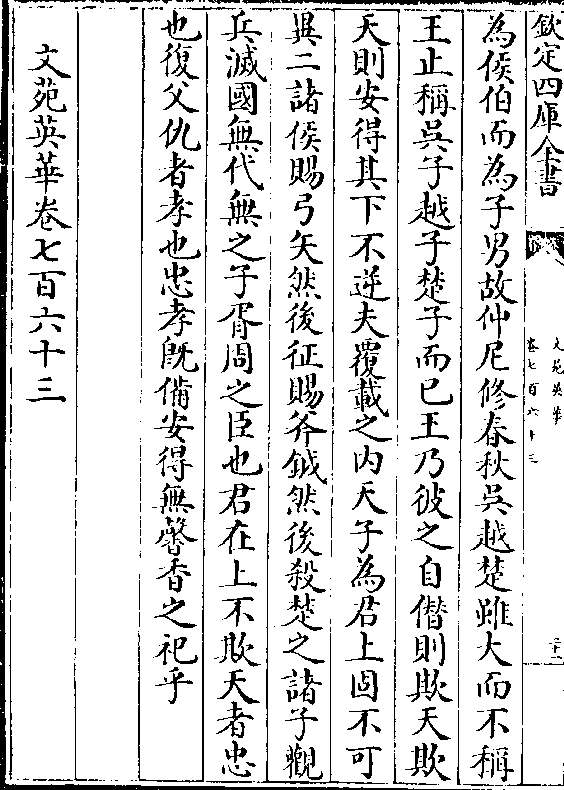 欽定四庫全書
文苑英華
卷七百六十三
二十一
為侯伯而為子男故仲尼修春秋吳越楚雖大而不稱
王止稱吳子越子楚子而已王乃彼之自僭則欺天欺
天則安得其下不逆夫覆載之内天子為君上固不可
異二諸侯賜弓矢然後征賜斧鉞然後殺楚之諸子觀
兵滅國無代無之子胥周之臣也君在上不欺天者忠
也復父仇者孝也忠孝既備安得無馨香之祀乎
文苑英華卷七百六十三